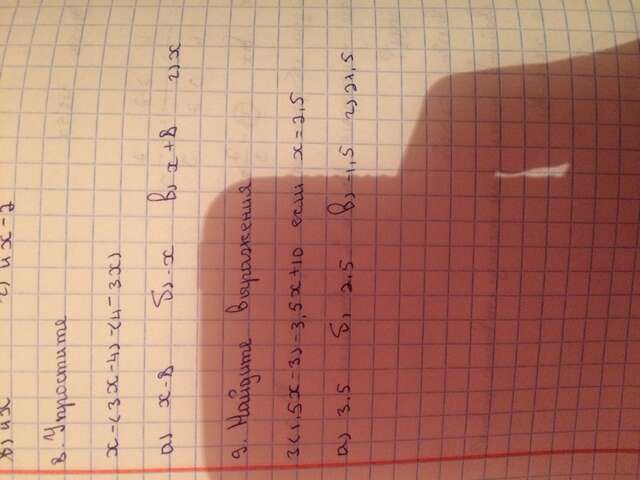 б) 4x г) 4x-2
8. Упростите
x-(3x-4)-(4-3x)
а) x-8 б) -x в) x+8 г) x
9. Найдите выражения
3(1,5x-3)-3,5x+10 если x=2,5
а) 3.5 б) 2.5 в) -1,5 г) 21,5